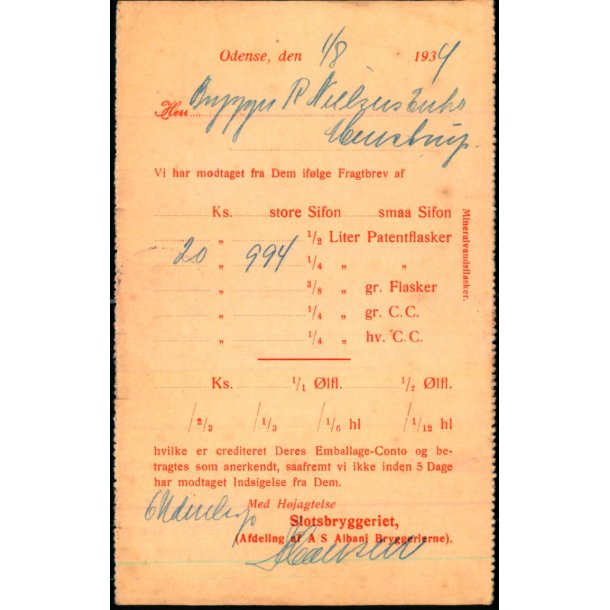 Odense, den 1/8 1934
Herr Brygger R Nielsens Enke
Vi har modtaget fra Dem ifølge Fragtbrev af
Ks. store Sifon smaa Sifon
„ ½ Liter Patentflasker
20 „ 994 ¼ „ „
„ ⅜ „ gr. Flasker
„ ¼ „ gr. C.C.
„ ¼ „ hv. C.C.
Mineralvandsflasker.
Ks. 1/1 Ølfl. ½ Ølfl.
/2/3 /1/3 /1/6 hl /1/12 hl
hvilke er crediteret Deres Emballage-Conto og be-
tragtes som anerkendt, saafremt vi ikke inden 5 Dage
har modtaget Indsigelse fra Dem.
Med Højagtelse
Slotsbryggeriet,
(Afdeling af A/S Albani Bryggerierne).